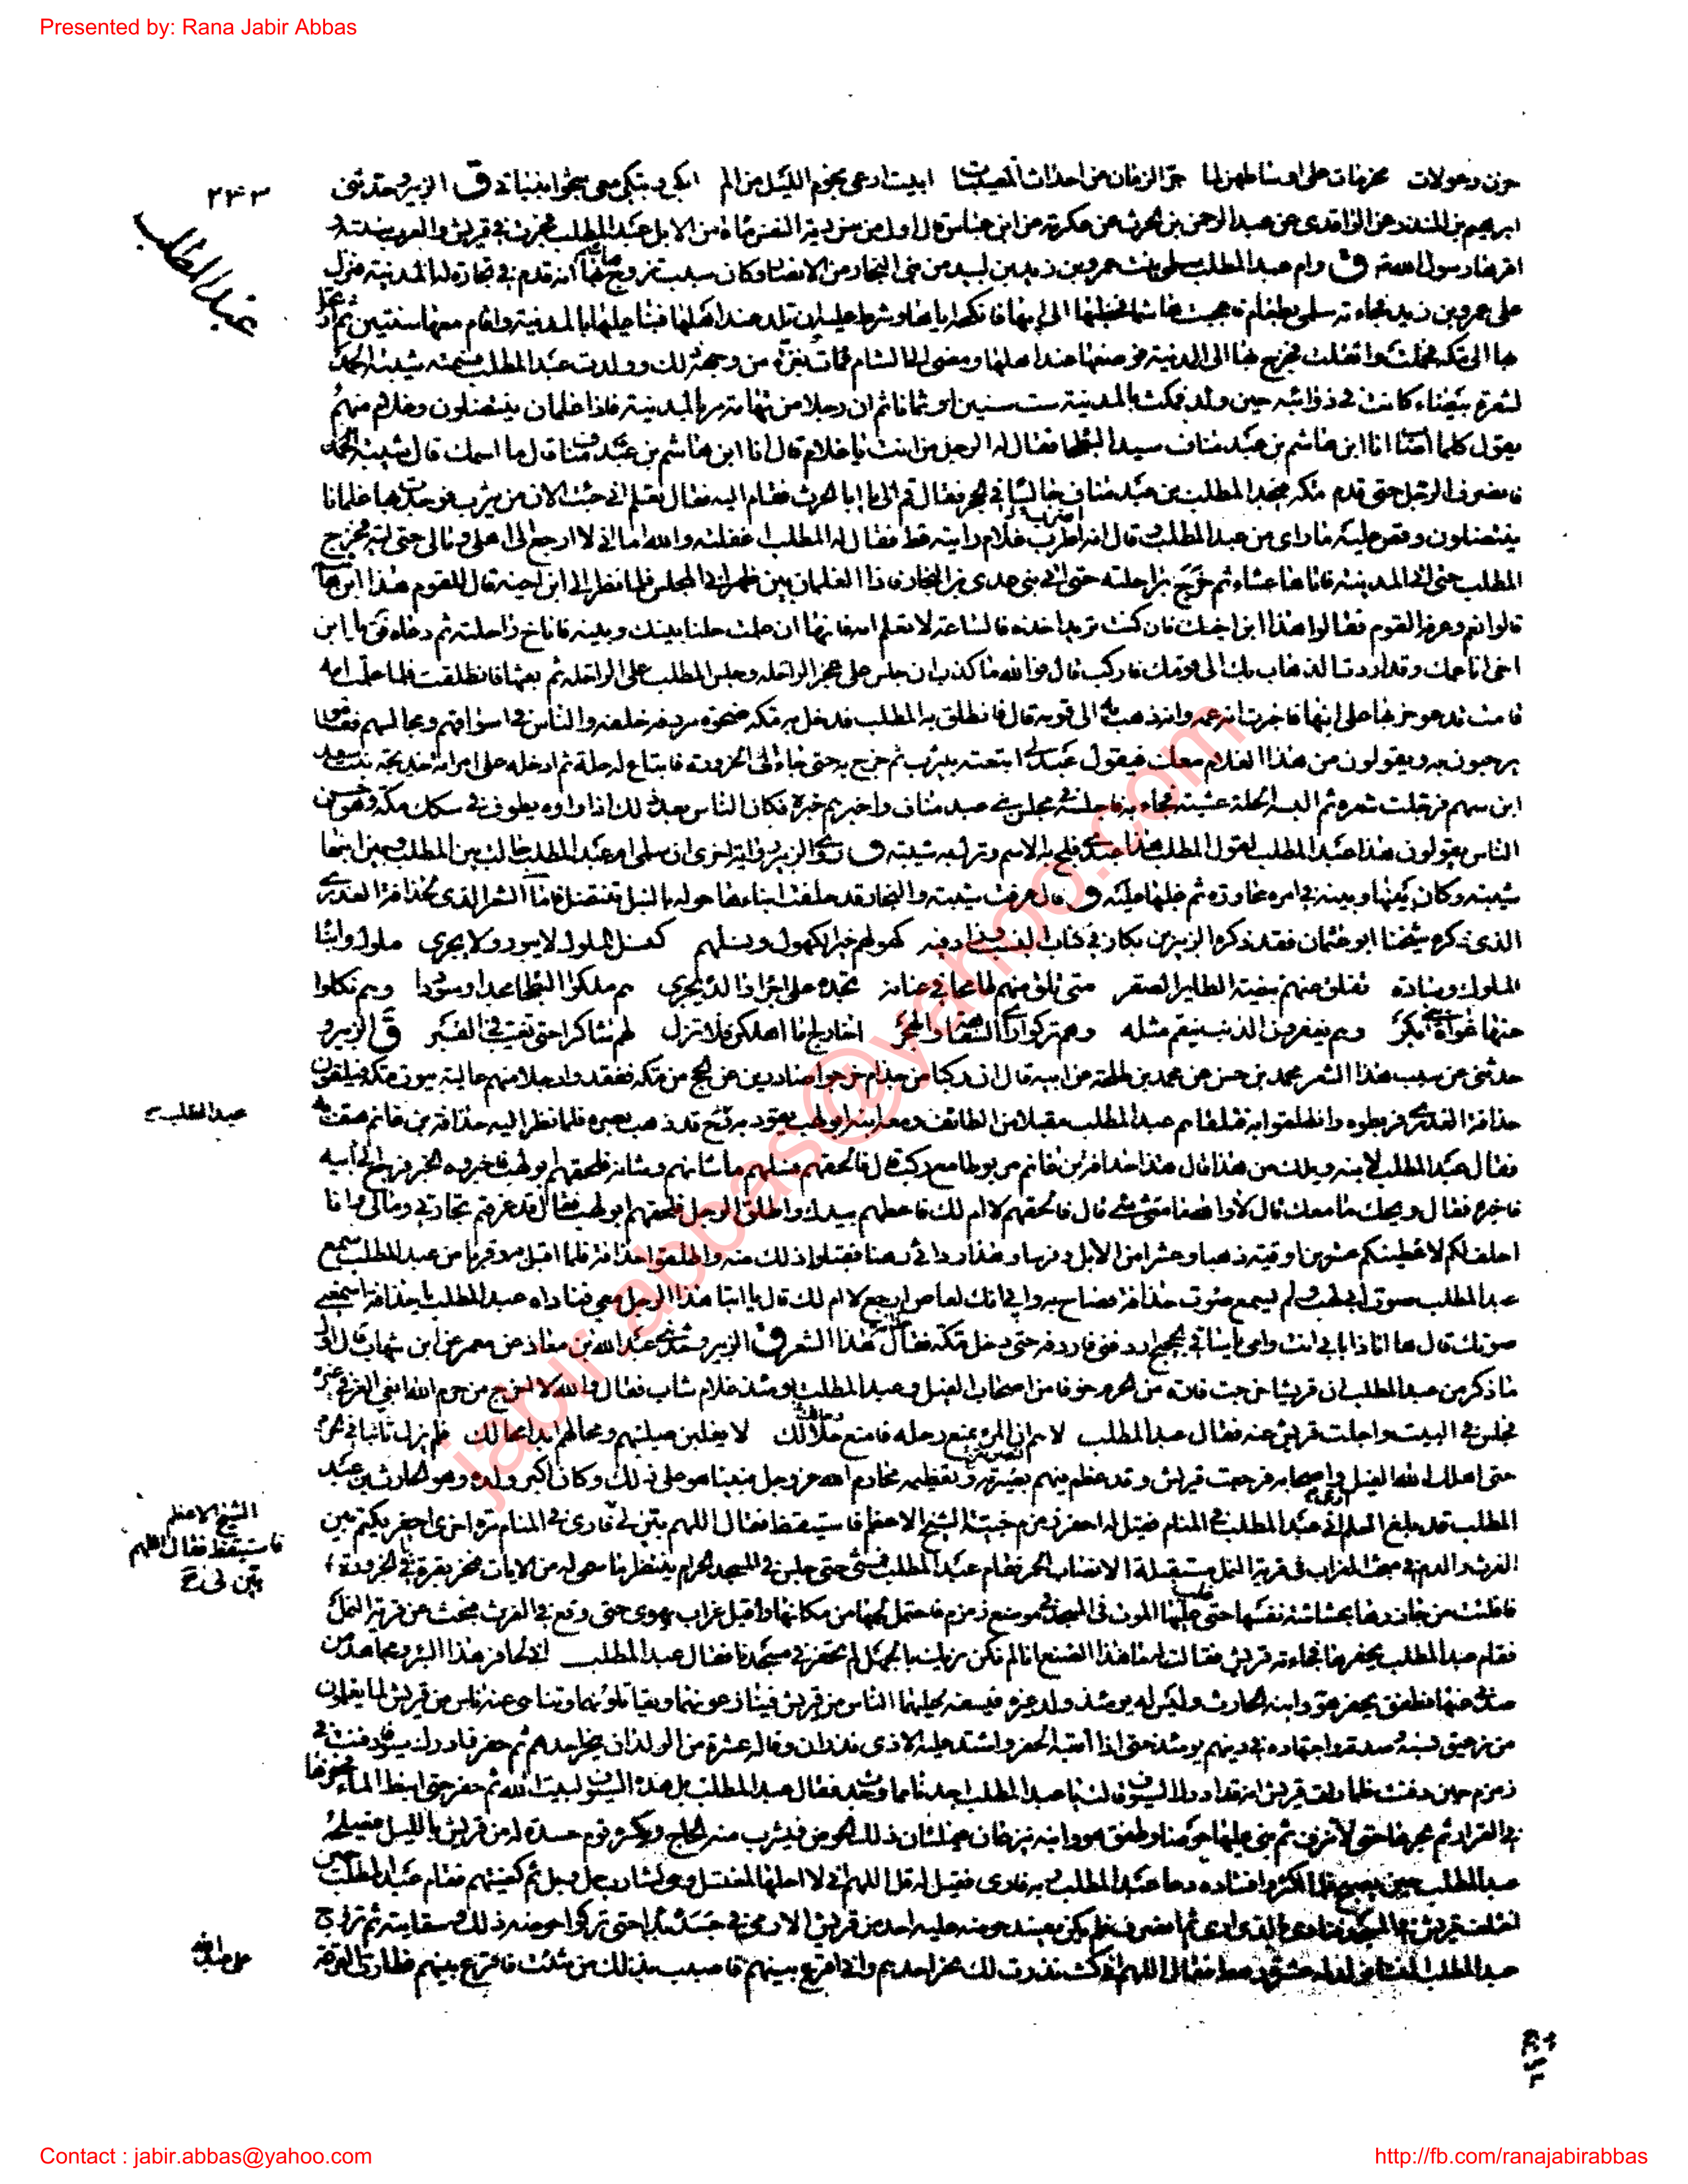 Presented by: Rana Jabir Abbas
٢٣٣
عبد المطلب
حزن وعولات محزمات على اوساطهن لما جر الزمان من احداث المصيبات ابيت ارعى نجوم الليل من الم ابكى وتبكى معى شجوا بنياتى ق الزبير وحدثنى
ابرهيم بن المنذر عن الواقدى عن عبد الرحمن بن الحرث عن عكرمة عن ابن عباس قال اول من سن دية النفس مائة من الابل عبد المطلب فجرت فى قريش والعرب
اقرها رسول الله ق وام عبد المطلب سلمى بنت عمرو بن زيد بن لبيد من بنى النجار من الانصار وكان سبب تزوج هاشم بها انه قدم فى تجارة له المدينة فنزل
على عمرو بن زيد فجاءته سلمى بطعام فاعجبت هاشما فخطبها الى ابيها فانكحه اياها وشرط عليه ان تلد عند اهلها فبنا عليها بالمدينة واقام معها سنتين ثم
بها الى مكة فحملت واثقلت فخرج بها الى المدينة فوضعها عند اهلها ومضى الى الشام فمات بغزة من وجهه ذلك وولدت عبد المطلب فسمته شيبة الحمد
لشعرة بيضاء كانت فى ذوائبه حين ولد فمكث بالمدينة ست سنين او ثمانا ثم ان رجلا من تهامة مر بالمدينة فاذا غلمان ينتضلون وغلام منهم
يقول كلما اصاب انا ابن هاشم بن عبد مناف سيد البطحاء فقال له الرجل من انت يا غلام قال انا ابن هاشم بن عبد مناف قال ما اسمك قال شيبة الحمد
فانصرف الرجل حتى قدم مكة فيجد المطلب بن عبد مناف جالسا فى الحجر فقال قم الى يا ابا الحرث فقام اليه فقال تعلم انى جئت الان من يثرب فوجدت بها غلمانا
ينتضلون وقص عليه ما راى من عبد المطلب وقال انه اضرب غلام رايته قط فقال له المطلب اغفلته والله اما انى لا ارجع الى اهلى ومالى حتى اتيه فخرج
المطلب حتى اتى المدينة فاتاها عشاء ثم خرج براحلته حتى اتى بنى عدى بن النجار فاذا الغلمان بين ظهرانى المجلس فلما نظر الى ابن اخيه قال للقوم هذا ابن هاشم
قالوا نعم وعرفه القوم فقالوا هذا ابن اخيك فان كنت تريد اخذه فالساعة لا نعلم امه فانها ان علمت حلنا بينك وبينه فاناخ راحلته ثم دعاه فق يا ابن
اخى انا عمك وقد اردت الذهاب بك الى قومك فاركب قال فوالله ما كذب ان جلس على عجز الراحلة وجلس المطلب على الراحلة ثم بعثها فانطلقت فلما علمت امه
قامت تدعو حزنها على ابنها فاخبرت انه عمه وانه ذهب به الى قومه قال فانطلق به المطلب فدخل به مكة ضحوة مردفه خلفه والناس فى اسواقهم ومجالسهم فقاموا
يرحبون به ويقولون من هذا الغلام معك فيقول عبد لى ابتعته بيثرب ثم خرج به حتى جاء الى الحزورة فابتاع له حلة ثم ادخله على امراته خديجة بنت سعيد
ابن سهم فرجلت شعره ثم البسه الحلة عشية فجاء به فاجلسه فى مجلس بنى عبد مناف واخبرهم خبره فكان الناس بعد ذلك اذا راوه يطوف فى سكك مكة وهو احسن
الناس يقولون هذا عبد المطلب لقول المطلب هذا عبدى فلج به الاسم وترك به شيبة
الذى ذكره شيخنا ابو عثمان فقد ذكره الزبير بن بكار فى كتاب النسب كهولهم خير الكهول ونسلهم كنسل الملوك لا يبور ولا يجرى ملوك وابناء
الملوك وسادة تفلق عنهم بيضة الطاير الصقر متى تلق منهم طامحا فى عنانه تجده على اجراء والده يجرى هم ملكوا البطحاء مجدا وسوددا وهم نكلوا
عنها غواة بنى بكر وهم يغفرون الذنب ينقم مثله وهم تركوا راى السفاهة والهجر اخارج اما اهلكن فلا تزل لهم شاكرا حتى تغيب فى القبر ق الزبير و
حدثنى عن سبب هذا الشعر محمد بن حسن عن محمد بن طلحة عن ابيه قال ان ركبا من جذام خرجوا صادرين عن الحج من مكة ففقدوا رجلا منهم عالية بيوت مكة فيلقون
حذافة العدوى فربطوه وانطلقوا به فتلقاهم عبد المطلب مقبلا من الطائف ومعه ابنه ابو لهب يقود به وقد ذهب بصره فلما نظر اليه حذافة بن غانم هتف به
عبد المطلب
فقال عبد المطلب لابنه ويلك من هذا قال هذا حذافة بن غانم مربوطا مع ركب قال فالحقهم فسلهم ما شانهم وشانه فلحقهم ابو لهب فاخبروه الخبر فرجع الى ابيه
فاخبره فقال ويحك ما معك قال لا والله ما معى شئ قال فالحقهم لا ام لك فاعطهم بيدك واطلق الرجل فلحقهم ابو لهب فقال قد عرفتم تجارتى ومالى وانا
احلف لكم لاعطينكم عشرين اوقية ذهبا وعشرا من الابل وفرسا وهذا ردائى رهنا فقبلوا ذلك منه واطلقوا حذافة فلما اقبل به وقربا من عبد المطلب سمع
عبد المطلب صوت ابى لهب ولم يسمع صوت حذافة فصاح به وابى انك لعاص ارجع لا ام لك قال يا ابتا هذا الرجل معى فناداه عبد المطلب يا حذافة اسمعنى
صوتك قال ها انا ذا بابى انت وامى يا ساقى الحجيج اردفنى فاردفه حتى دخل مكة فقال هذا الشعر ق الزبير وحدثنى عبد الله بن معاذ عن معمر عن ابن شهاب قال اول
ما ذكر من عبد المطلب ان قريشا خرجت فارة من الحرم خوفا من اصحاب الفيل وعبد المطلب يومئذ غلام شاب فقال والله لا اخرج من حرم الله ابتغى العز فى غيره
فجلس فى البيت واجلت قريش عنه فقال عبد المطلب لاهم ان المرء يمنع رحله فامنع حلالك لا يغلبن صليبهم ومحالهم غدوا محالك فلم يزل ثابتا فى الحرم
حتى اهلك الله الفيل واصحابه فرجعت قريش وقد عظم فيهم بصبره وتعظيمه محارم الله عز وجل فبينا هو على ذلك وكان اكبر ولده وهو الحارث بن عبد
المطلب قد بلغ الحلم ارى عبد المطلب فى المنام فقيل له احفر زمزم خبيئة الشيخ الاعظم فاستيقظ فقال اللهم بين لى فارى فى المنام مرة اخرى احفر تكتم بين
الشيخ الاعظم
فاستيقظ فقال اللهم
بين لى
الفرث والدم فى مبحث الغراب فى قرية النمل مستقبلة الانصاب الحمر فقام عبد المطلب فمشى حتى جلس فى المسجد الحرام ينتظر ما سمى له من الايات فنحر بقرة فى الحزورة
فافلتت من جازرها بحشاشة نفسها حتى غلبها الموت فى المسجد فى موضع زمزم فاحتمل لحمها من مكانها واقبل غراب يهوى حتى وقع فى الفرث فبحث عن قرية النمل
فقام عبد المطلب يحفرها فجاءته قريش فقالت له ما هذا الصنيع انا لم نكن نزنك بالجهل لم تحفر فى مسجدنا فقال عبد المطلب انى لحافر هذا البئر ومجاهد من
صدنى عنها فطفق يحفر هو وابنه الحارث وليس له يومئذ ولد غيره فيسعى عليهما الناس من قريش فينازعونهما ويقاتلونهما وتناهى عنه ناس من قريش لما يعلمون
من عتيق نسبه وصدقه واجتهاده فى دينهم يومئذ حتى اذا اتعبه الحفر واشتد عليه الاذى نذر ان وفى له عشرة من الولدان ينحر احدهم ثم حفر فادرك سيوفا دفنت فى
زمزم حين دفنت فلما رات قريش انه قد ادرك السيوف قالت يا عبد المطلب اجدنا مما وجدت فقال عبد المطلب بل هذه السيوف لبيت الله ثم حفر حتى انبط الماء
فى القرار ثم بحرها حتى لا تنزف ثم بنى عليها حوضا وطفق هو وابنه ينزعان فيملئان ذلك الحوض فيشرب منه الحاج ويكسره قوم حسدة له من قريش بالليل فيصلحه
عبد المطلب حين يصبح فلما اكثروا افساده دعا عبد المطلب ربه فارى فقيل له قل اللهم انى لا احلها لمغتسل وهى لشارب حل وبل ثم كفيتهم فقام عبد المطلب حين
اختلفت قريش فى المسجد فنادى بالذى ارى ثم انصرف فلم يكن يفسد حوضه عليه احد من قريش الا رمى فى جسده بداء حتى تركوا حوضه ذلك وسقايته ثم تزوج
عبد المطلب النساء فولد له عشرة رهط فقال اللهم انى كنت نذرت لك نحر احدهم وانى اقرع بينهم فاصب بذلك من شئت فاقرع بينهم فطارت القرعة
على عبد الله
jabir.abbas@yahoo.com
Contact : jabir.abbas@yahoo.com
http://fb.com/ranajabirabbas